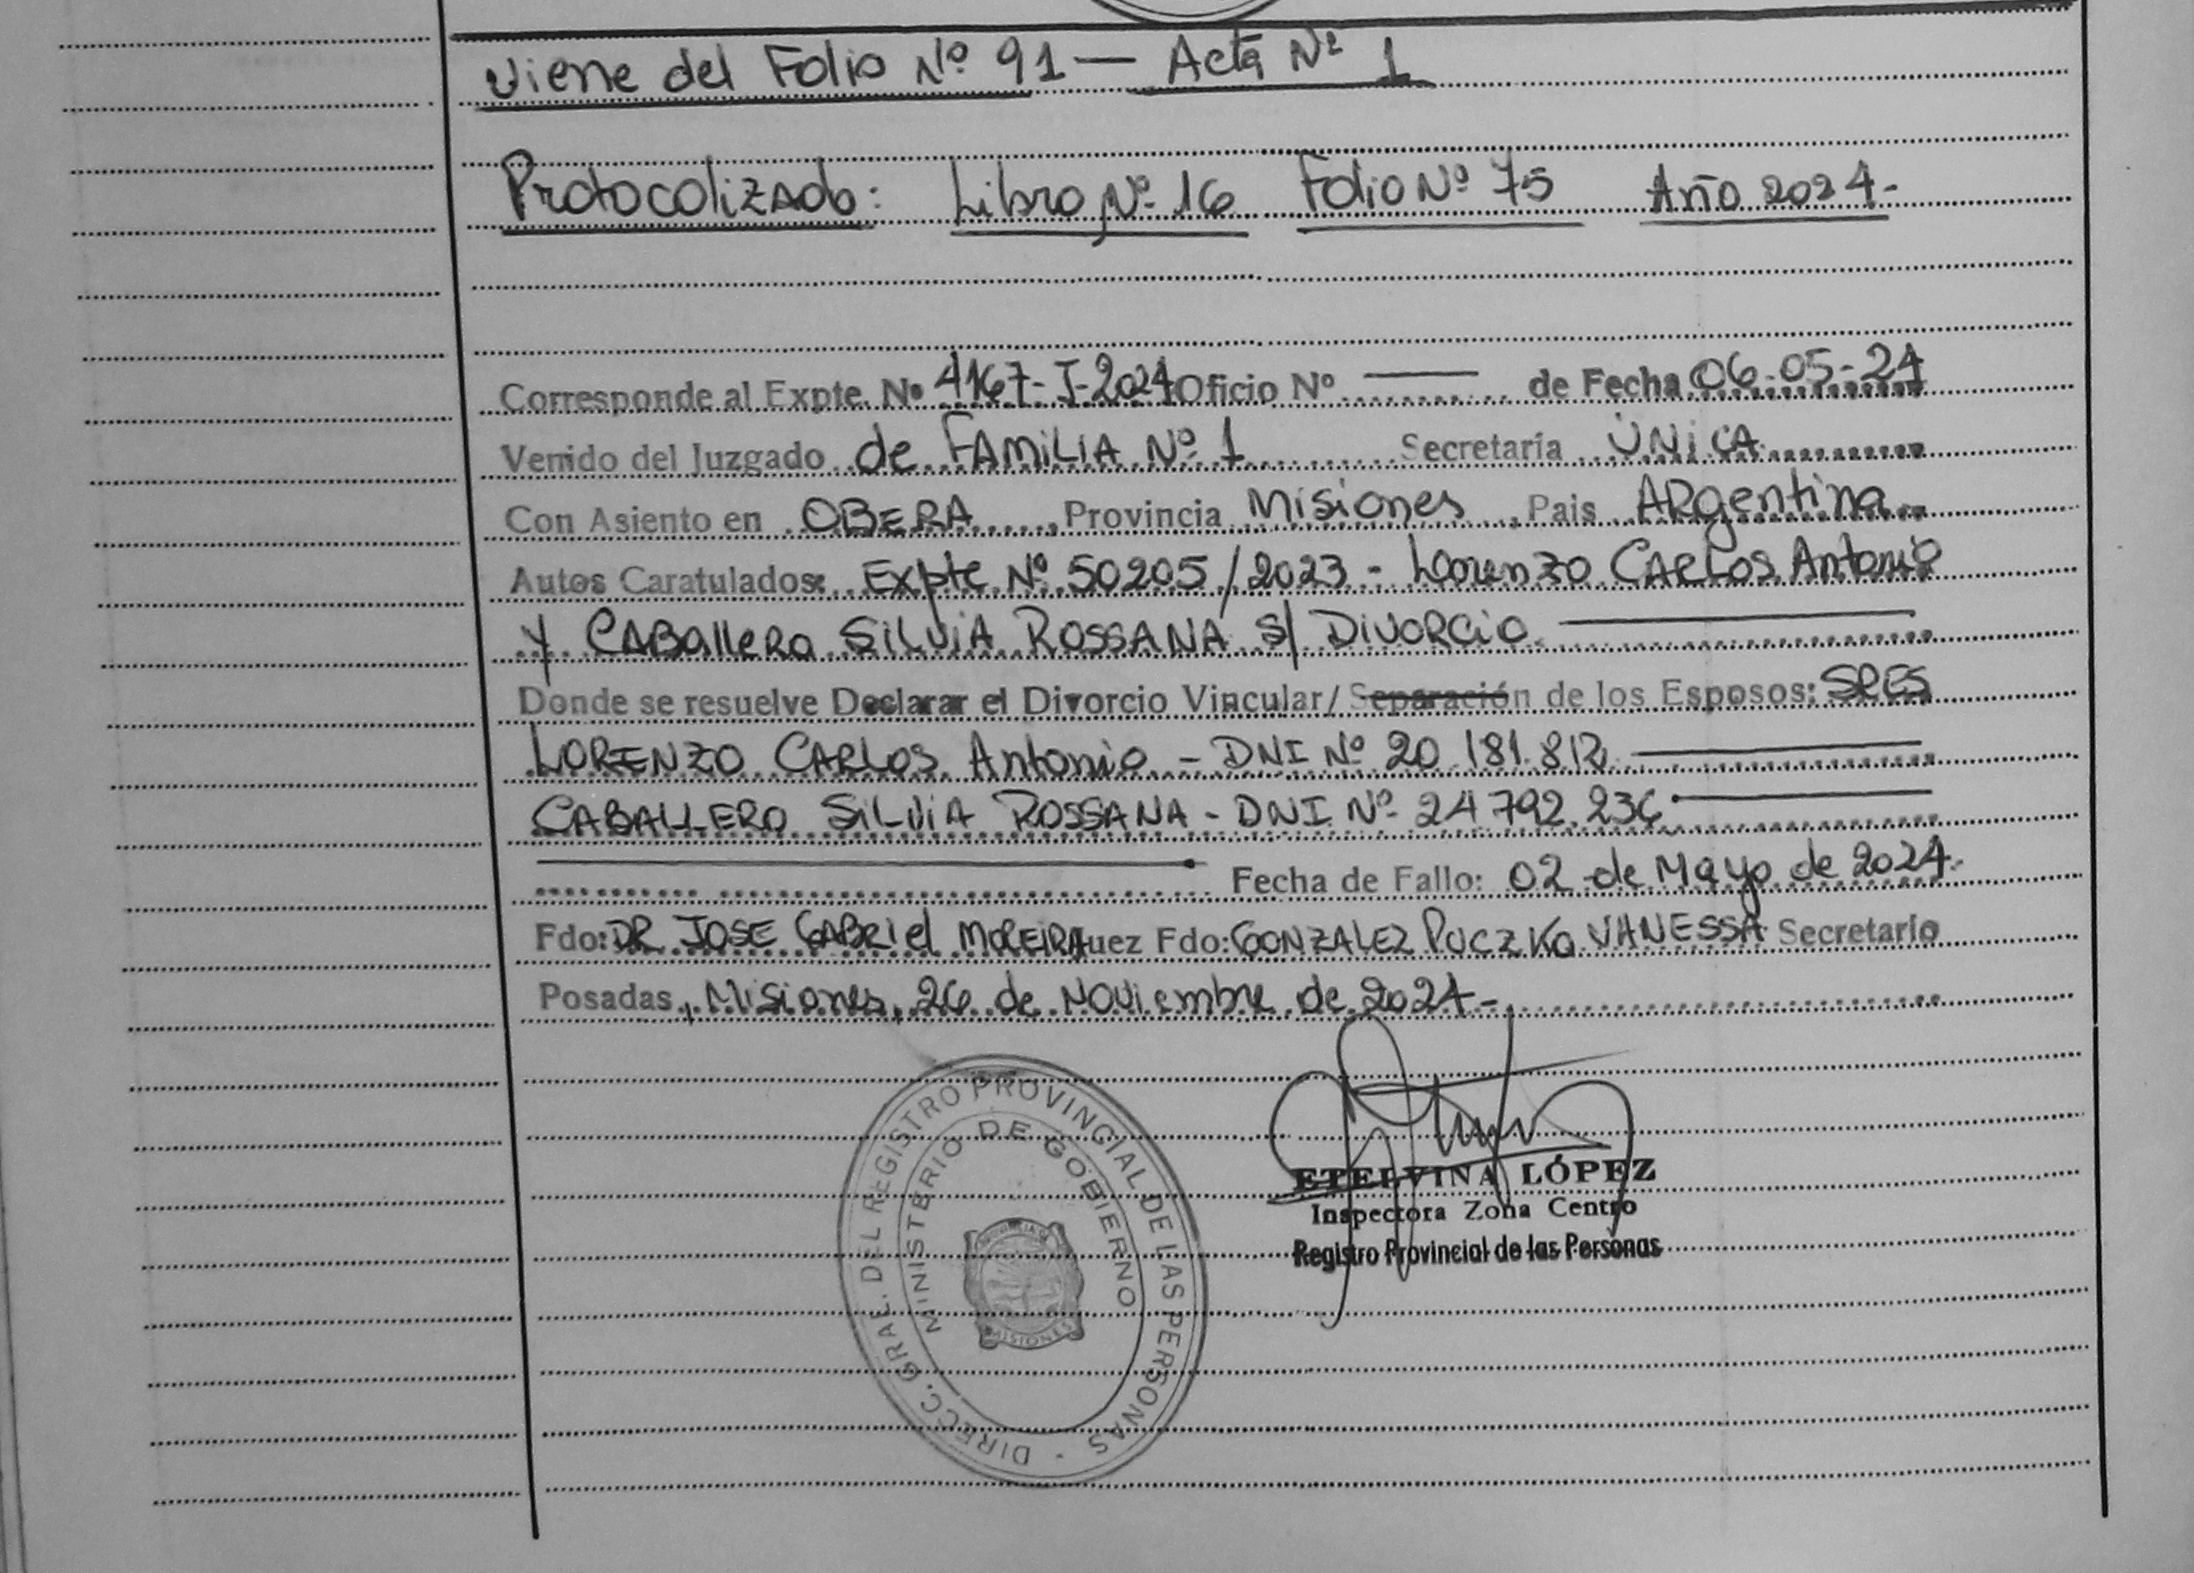 Viene del Folio Nº 91 — Acta Nº 1
Protocolizado: Libro Nº 16 Folio Nº 75 Año 2024.-
Corresponde al Expte. Nº 4167-J-2024 Oficio Nº ——— de Fecha 06-05-24
Venido del Juzgado de FAMILIA Nº 1 Secretaría ÚNICA
Con Asiento en OBERA, Provincia Misiones, Pais ARgentina
Autos Caratulados: Expte Nº 50205/2023 - Lorenzo CARLOS Antonio
Y CABAllERO SILVIA ROSSANA S/ DIVORCIO
Donde se resuelve Declarar el Divorcio Vincular/ Separación de los Esposos: SRES
LORENZO CARLOS Antonio - DNI Nº 20.181.812
CABALLERO SILVIA ROSSANA - DNI Nº 24.792.236
Fecha de Fallo: 02 de Mayo de 2024.-
Fdo: DR JOSE GABRIEL MOREIRA Juez Fdo: GONZALEZ PUCZKO VANESSA Secretario
Posadas, Misiones, 26 de Noviembre de 2024-
DIRECC. GRAL. DEL REGISTRO PROVINCIAL DE LAS PERSONAS -
MINISTERIO DE GOBIERNO
MISIONES
ETELVINA LÓPEZ
Inspectora Zona Centro
Registro Provincial de las Personas